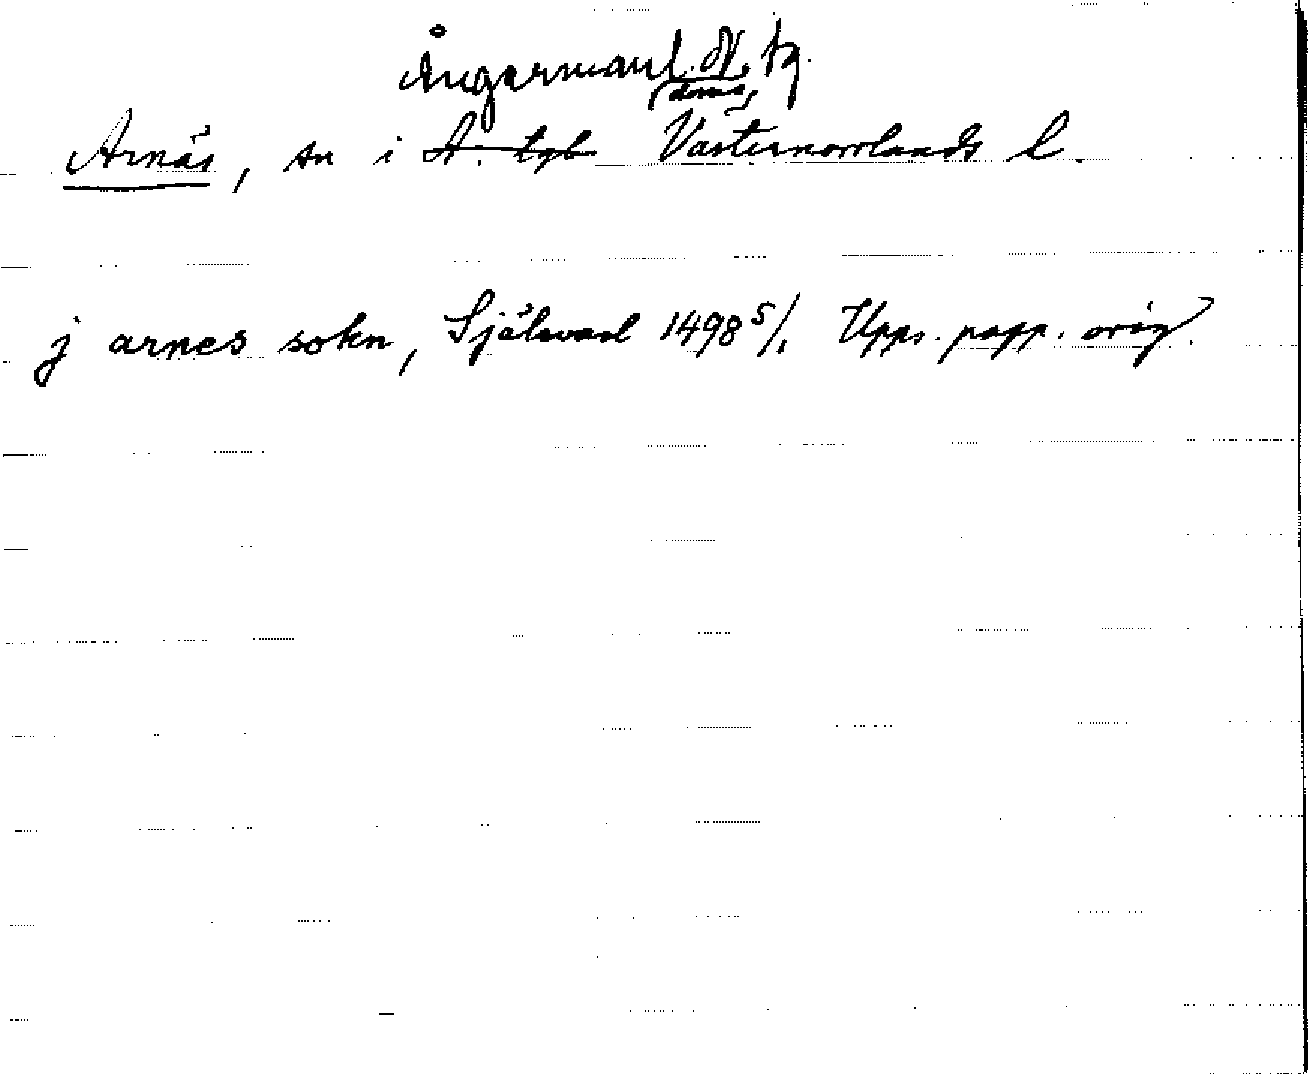 Ångermanl. N. tg.
Arnäs, sn i A. tgl Västernorrlands l.
j arnes sokn, Själevad 1498 5/1. Upps. papp. orig.